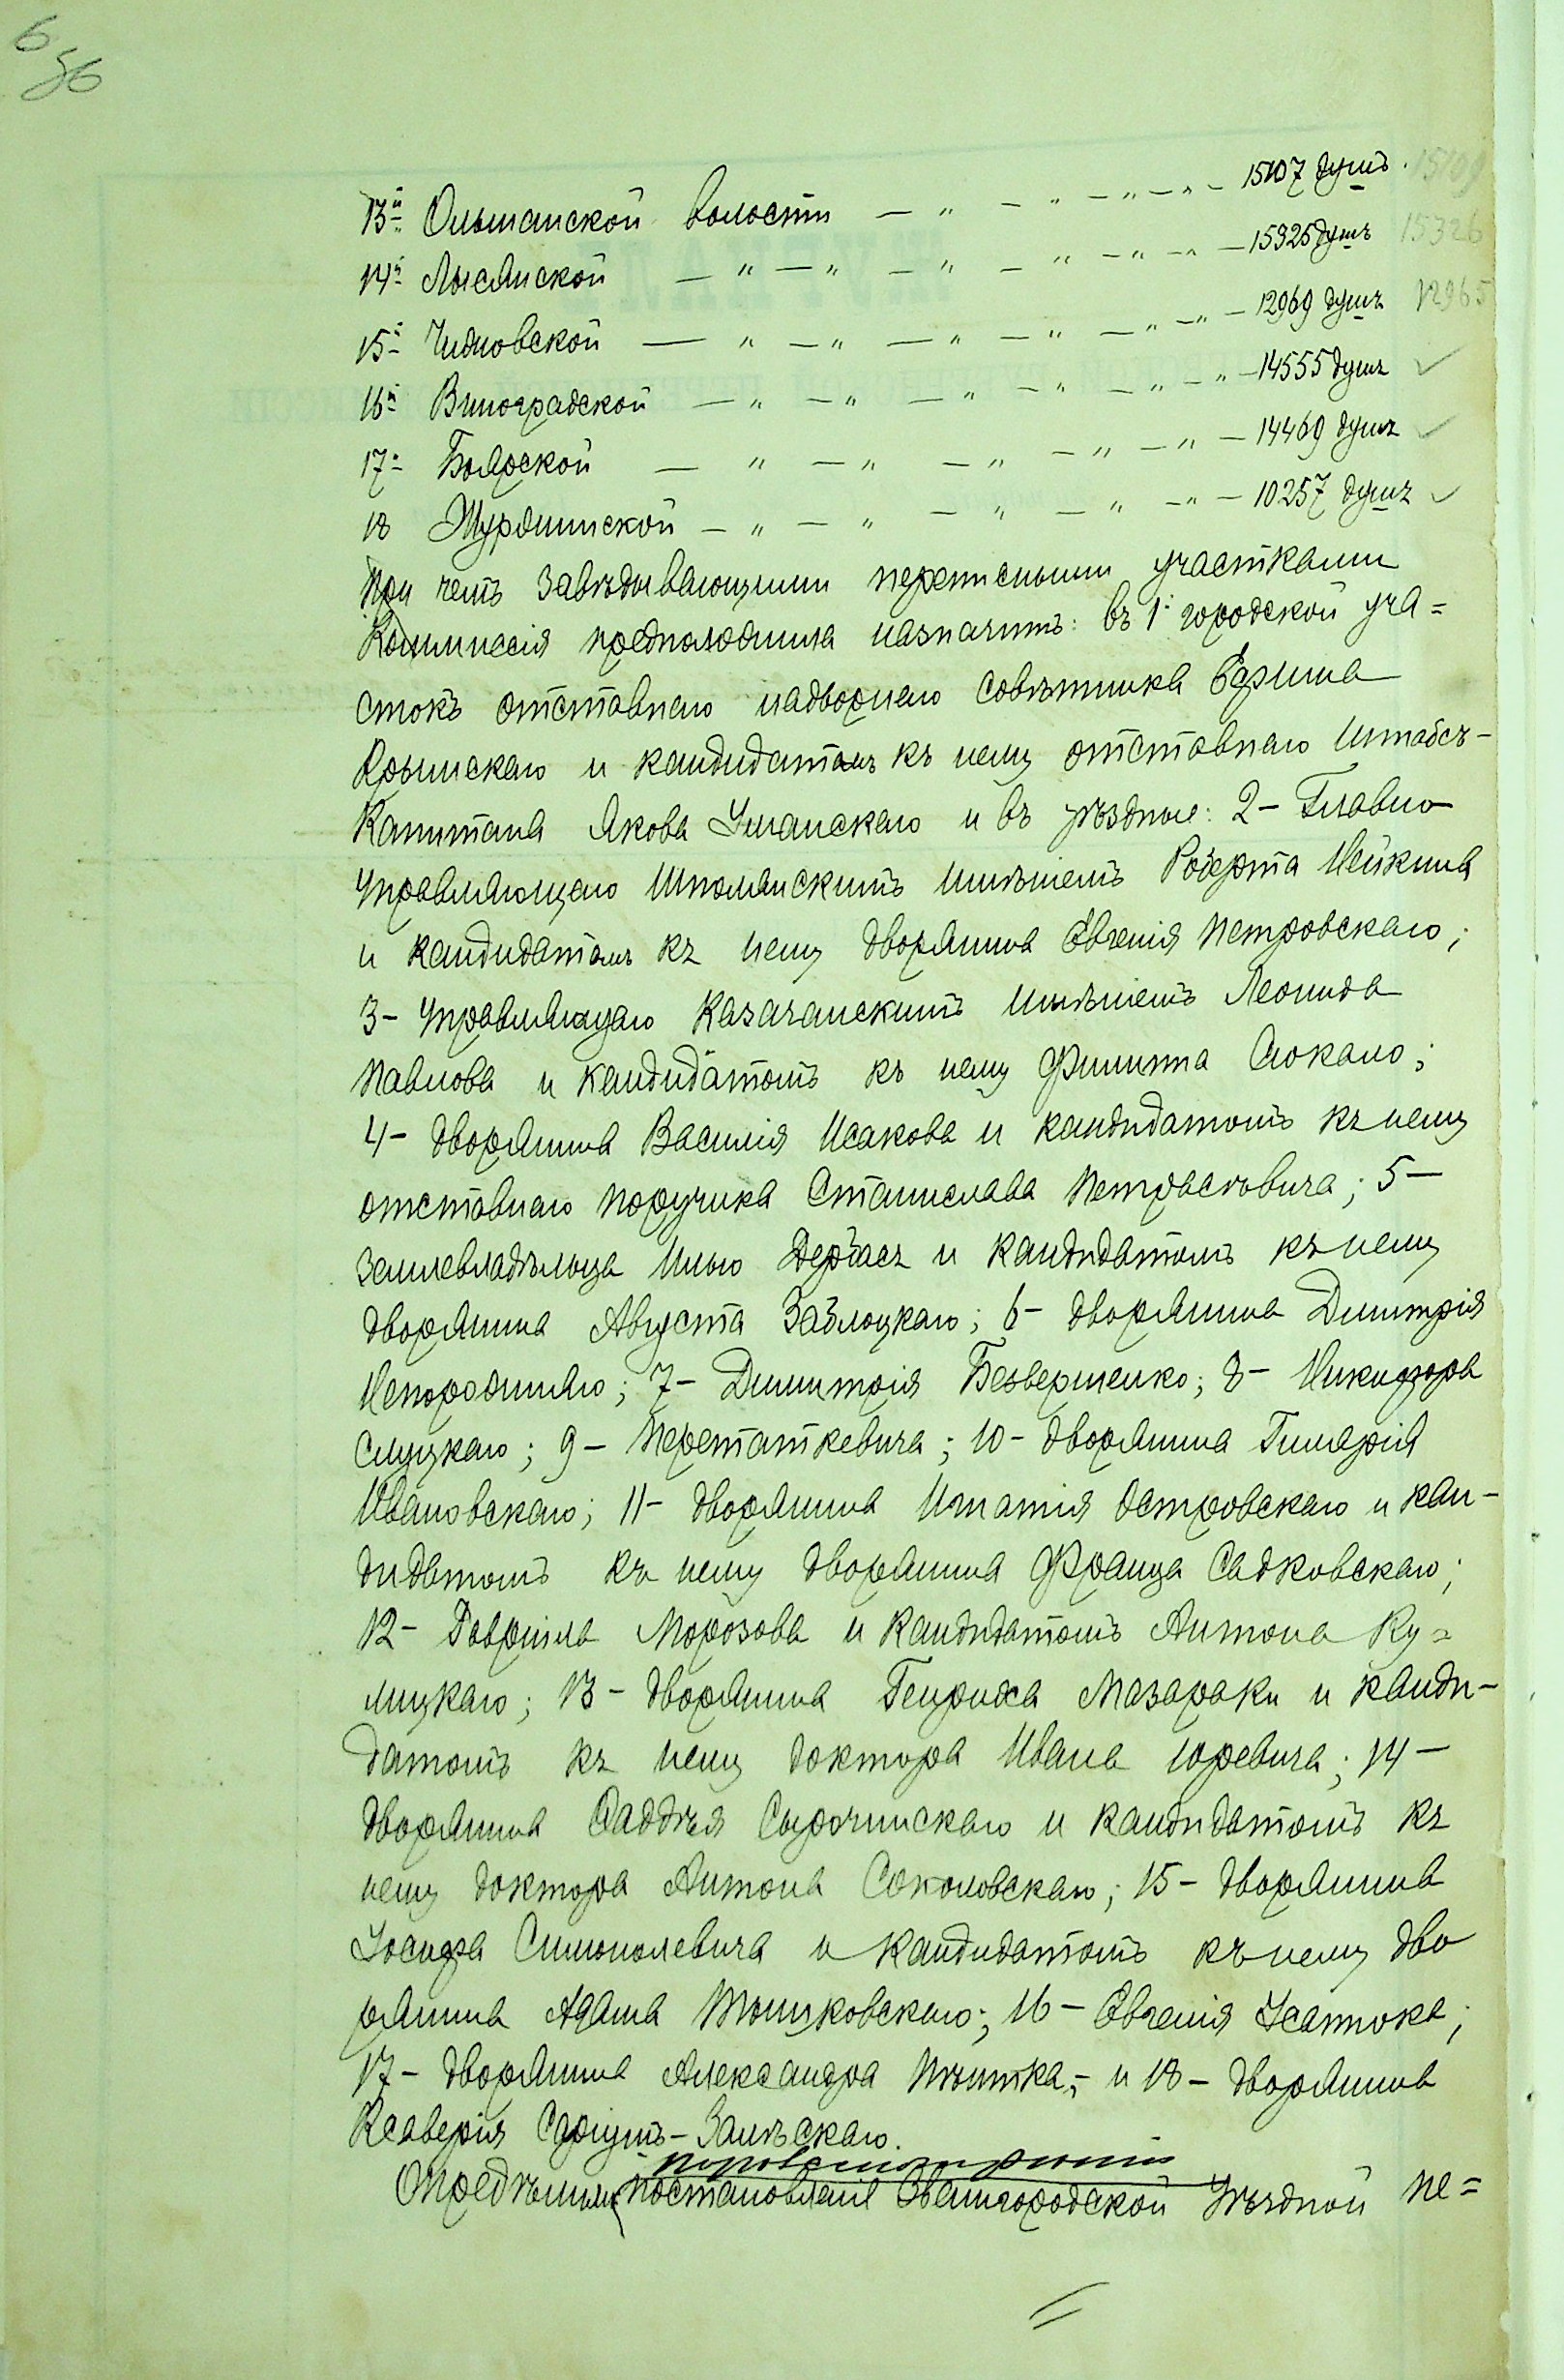 6
56
13й Ольшанской волости — " — " — " — " — 15107 душъ. 15109
14й Лысянской — " — " — " — " — " — " — 15925 душъ 15326
15й Чижовской — " — " — " — " — " — " — 12969 душъ 12965
16й Виноградской — " — " — " — " — " — " — 14555 душъ ✓
17й Боярской — " — " — " — " — " — 14469 душъ ✓
18 Журжинской — " — " — " — " — " — 10257 душъ ✓
При чемъ завѣдывающими переписными участками
Коммиссія предположила назначить: въ 1й городской уча=
стокъ отставнаго надворнаго совѣтника Ефима
Крымскаго и кандидатомъ къ нему отставнаго Штабсъ-
Капитана Якова Уманскаго и въ уѣздные: 2 – Главно
управляющаго Шполянскимъ имѣніемъ Роберта Нейкина
и кандидатомъ къ нему дворянина Евгенія Петровскаго;
3 – Управляющаго Казачанскимъ имѣніемъ Леонида
Павлова и кандидатомъ къ нему Филиппа Слюкаго;
4 – дворянина Василія Исакова и кандидатомъ къ нему
отставнаго поручика Станислава Петрасевича; 5 –
землевладѣльца Илью Дербасъ и кандидатомъ къ нему
дворянина Августа Заблоцкаго; 6 – дворянина Димитрія
Непорожняго; 7 – Димитрія Безвершенко; 8 – Никифора
Слуцкаго; 9 – Перетяткевича; 10 – дворянина Гилярія
Ивановскаго; 11 – дворянина Игнатія Островскаго и кан-
дидатомъ къ нему дворянина Франца Садковскаго;
12 – Гавріила Морозова и кандидатомъ Антона Ку=
лицкаго; 13 – дворянина Генриха Мазараки и канди-
датомъ къ нему доктора Ивана Юревича; 14 –
дворянина Фаддѣя Сырочинскаго и кандидатомъ къ
нему доктора Антона Соколовскаго; 15 – дворянина
Іосифа Симонолевича и кандидатомъ къ нему дво
рянина Адама Тышковскаго; 16 – Евгенія Усатюка;
17 – дворянина Александра Пѣнтка; – и 18 – дворянина
Ксаверія Сариушъ-Залѣскаго.
Опредѣлили: постановленіе Звенигородской Уѣздной пе=